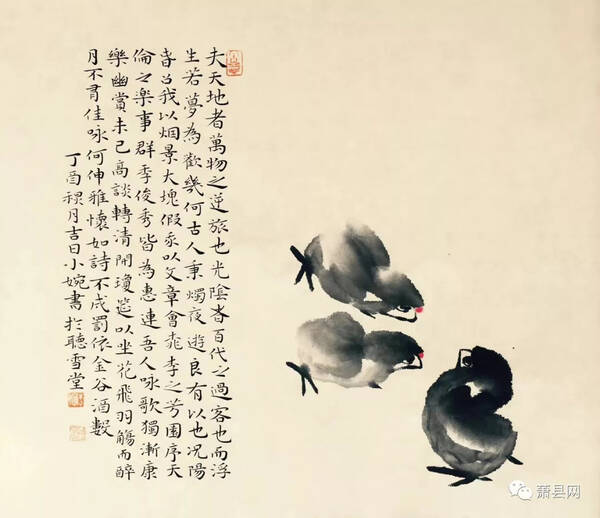 夫天地者萬物之逆旅也光陰者百代之過客也而浮
生若夢為歡幾何古人秉燭夜遊良有以也况陽
春召我以烟景大塊假我以文章會桃李之芳園序天
倫之樂事群季俊秀皆為惠連吾人咏歌獨漸康
樂幽賞未已高談轉清開瓊筵以坐花飛羽觴而醉
月不有佳咏何伸雅懷如詩不成罰依金谷酒數
丁酉月吉日小婉書於聽雪堂
萧县网